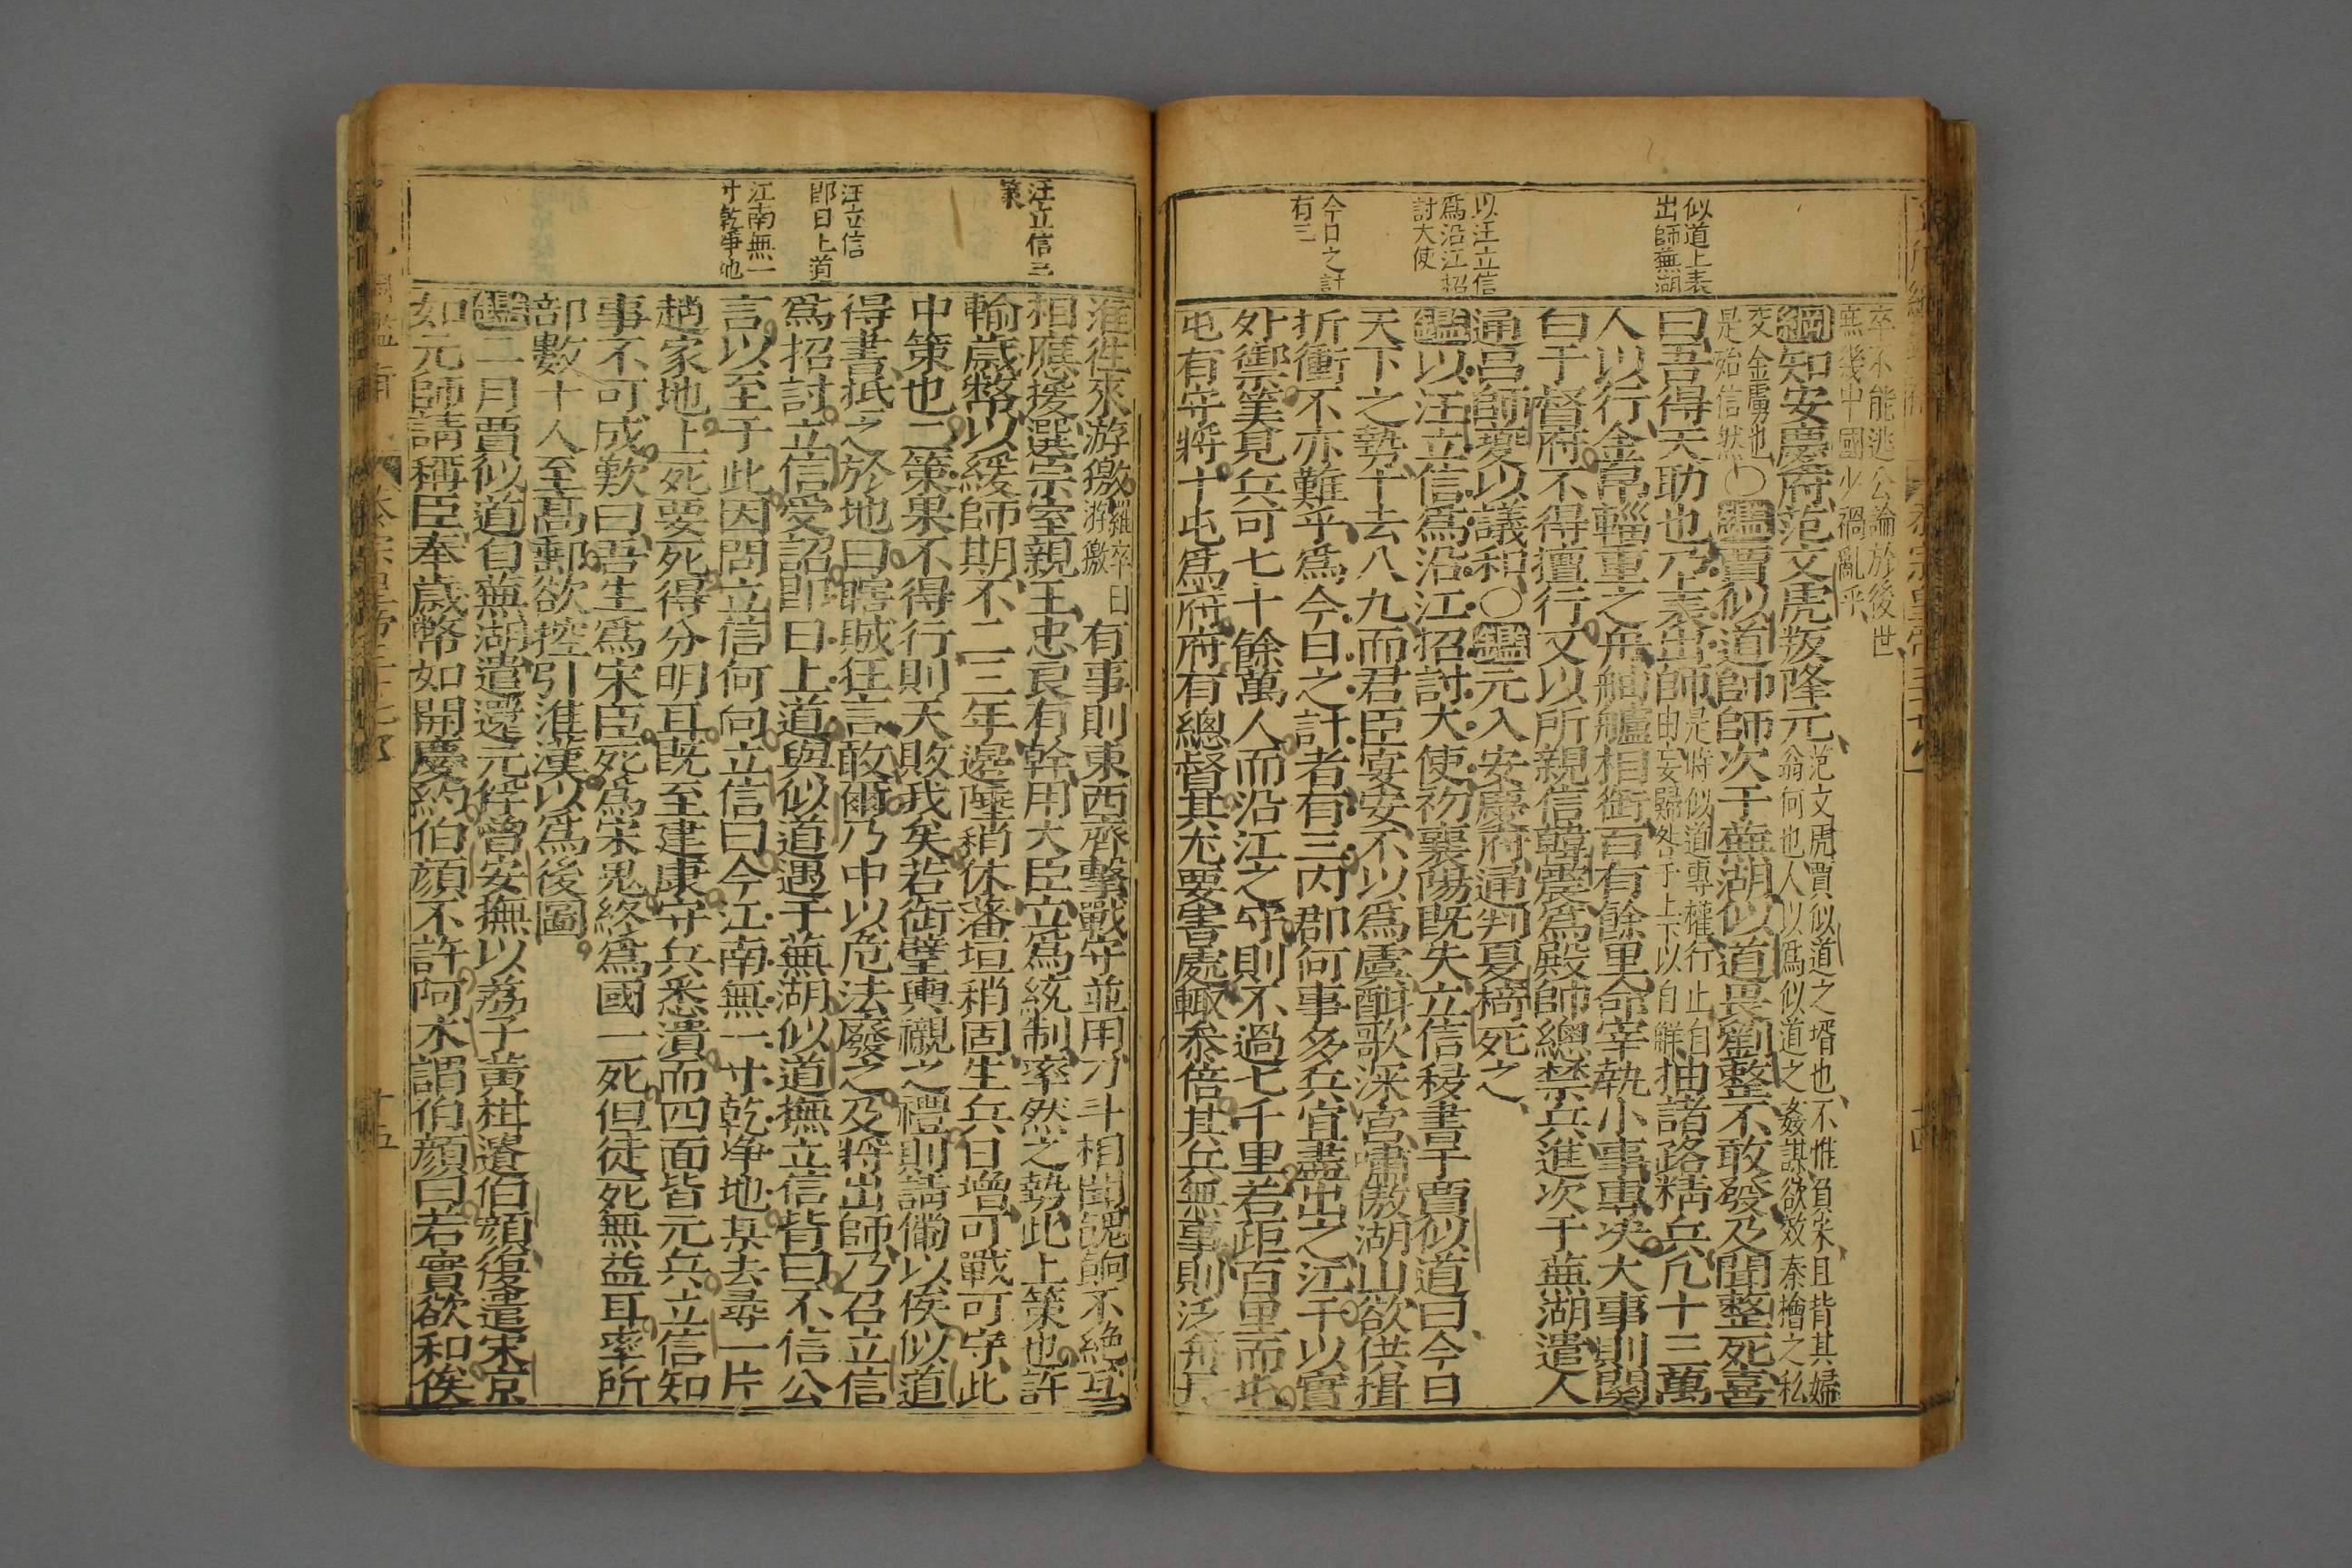 似道上表
出師蕪湖
以汪立信
爲沿江招
討大使
今日之計
有三
卒不能逃公論於後世
庶幾中國少禍亂乎
綱知安慶府范文虎叛降元范文虎賈似道之壻也不惟負宋且背其婦
翁何也人以爲似道之姦謀欲效秦檜之私
交金虜也
是殆信然○鑑賈似道師師次于蕪湖似道畏劉整不敢發及聞整死喜
曰吾得天助也乃上表出師是時似道專權行止自
由妄歸咎于上下以自解抽諸路精兵凡十三萬
人以行金帛輜重之舟舳艫相銜百有餘里命宰執小事專决大事則關
白于督府不得擅行又以所親信韓震爲殿帥總禁兵進次于蕪湖遣人
通呂師夔以議和○鑑元入安慶府通判夏椅死之
鑑以汪立信爲沿江招討大使初襄陽既失立信移書于賈似道曰今日
天下之勢十去八九而君臣宴安不以爲虞酣歌深宮嘯傲湖山欲供揖
折衝不亦難乎爲今日之計者有三内郡何事多兵宜盡出之江干以實
外禦筭見兵可七十餘萬人而沿江之守則不過七千里若距百里而屯
屯有守將十屯爲府府有總督其尤要害處輒叅倍其兵無事則泛舟長
汪立信三
策
汪立信
即日上道
江南無一
寸乾淨地
淮徃來游徼羅卒曰
游徼有事則東西齊擊戰守並用刁斗相聞餽餉不絶互
相應援選宗室親王忠良有幹用大臣立爲統制率然之勢此上策也許
輸歲幣以緩師期不二三年邊陲稍休藩垣稍固生兵日增可戰可守此
中策也二策果不得行則天敗我矣若銜璧輿櫬之禮則請備以俟似道
得書抵之於地曰瞎賊狂言敢爾乃中以危法廢之及將出師乃召立信
爲招討立信受詔即日上道與似道遇于蕪湖似道撫立信背曰不信公
言以至于此因問立信何向立信曰今江南無一寸乾净地某去尋一片
趙家地上死要死得分明耳既至建康守兵悉潰而四面皆元兵立信知
事不可成歎曰吾生爲宋臣死爲宋鬼終爲國一死但徒死無益耳率所
部數十人至高郵欲控引淮漢以爲後圖
鑑二月賈似道自蕪湖遣還元俘曾安撫以荔子黃柑遺伯顔復遣宋京
如元師請稱臣奉歲幣如開慶約伯顔不許阿术謂伯顔曰若實欲和俟